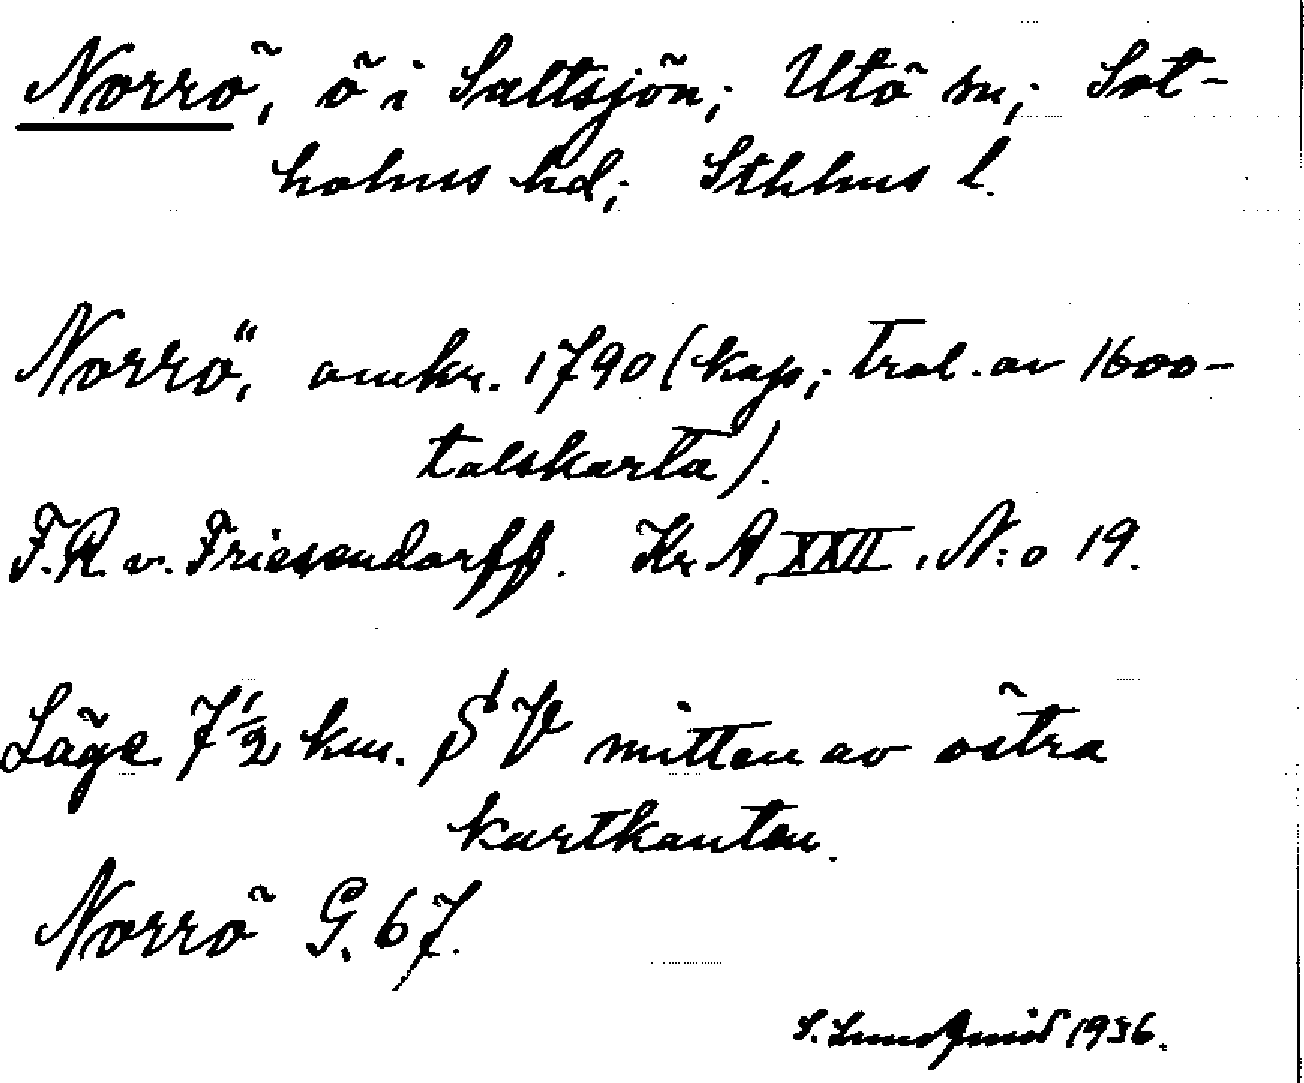 Norrö, ö i Saltsjön; Utö sn; Sot-
holms hd; Sthlms l.
Norrö, omkr. 1790 (kop; trol. av 1600-
talskarta).
F.R. v. Friesendorff. Kr. A. XXII. N:o 19.
Läge 7 1/2 km. S V mitten av östra
kartkanten.
Norrö G. 67.
S. Lundqvist 1936.